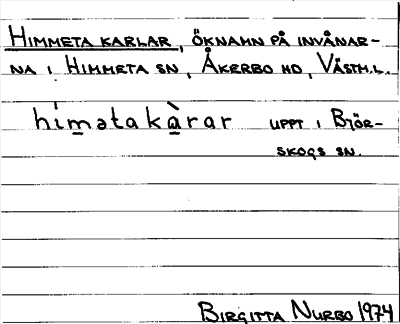 HIMMETA KARLAR, ÖKNAMN PÅ INVÅNAR-
NA I HIMMETA SN, ÅKERBO HD, VÄSTM.L.
hím̲ətakà̲rar UPPT I BJÖR-
SKOGS SN.
BIRGITTA NURBO 1974